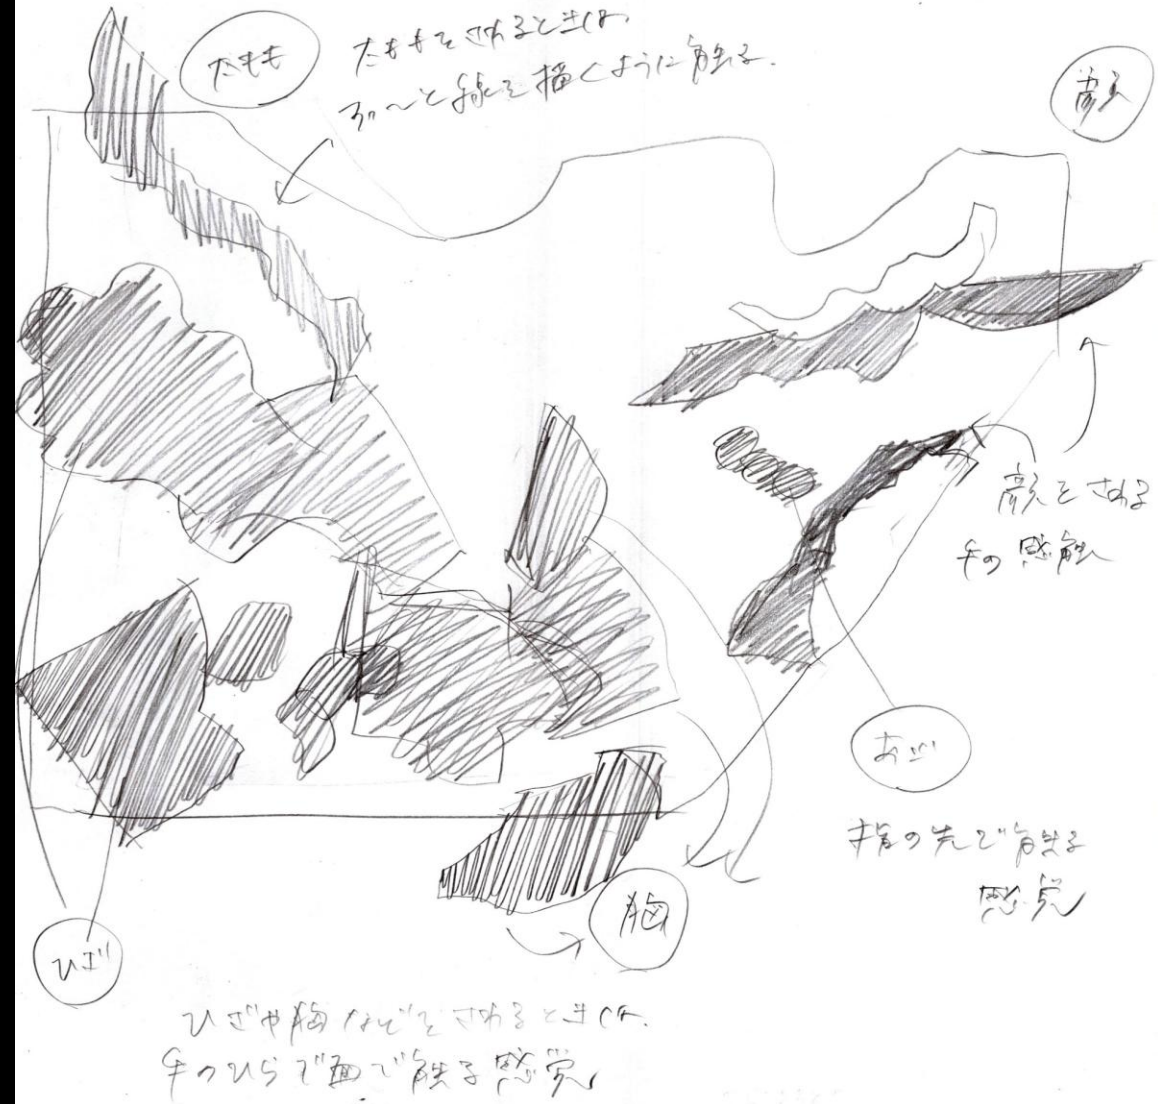 太もも
太ももをさわるときは、
すーっと線を描くように触る。
顔
顔をさわる
手の感触
おでこ
指の先で触る
感覚
胸
ひざ
ひざや胸などをさわるときは、
手のひらで面で触る感覚